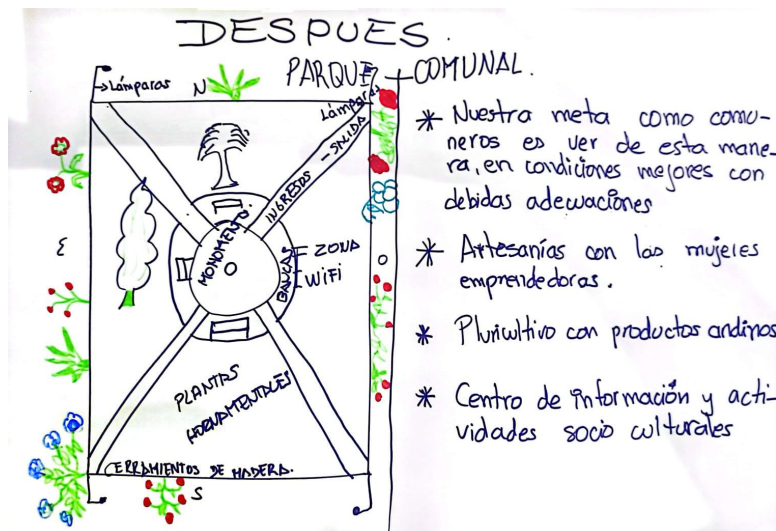 DESPUES.
PARQUE COMUNAL.
Lámparas
N
Lámparas
INGRESOS - SALIDA
MONOMENTO.
BANCAS
ZONA
WiFi
E
O
PLANTAS
HORNAMENTALES
CERRAMIENTOS DE MADERA.
S
* Nuestra meta como comu-
neros es ver de esta mane-
ra, en condiciones mejores con
debidas adecuaciones
* Artesanías con las mujeres
emprendedoras.
* Pluricultivo con productos andinos
* Centro de información y acti-
vidades socio culturales